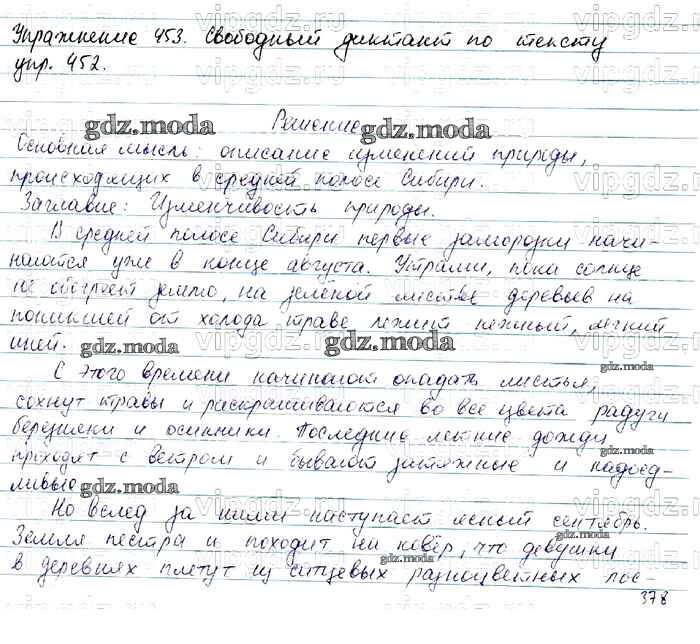 Упражнение 453. Свободный диктант по тексту
упр. 452.
Решение
Основная мысль: описание изменений природы,
происходящих в средней полосе Сибири.
Заглавие: Изменчивость природы.
В средней полосе Сибири первые заморозки начи-
наются уже в конце августа. Утрами, пока солнце
не обогреет землю, на зелёной листве деревьев на
поникшей от холода траве лежит нежный, лёгкий
иней.
С этого времени начинают опадать листья,
сохнут травы и раскрашиваются во все цвета радуги
березняки и осинники. Последние летние дожди
проходят с ветром и бывают затяжные и надоед-
ливые
Но вслед за ними наступает ясный сентябрь.
Земля пестра и походит на ковёр, что девушки
в деревнях плетут из ситцевых разноцветных лос-
378
gdz.moda
gdz.moda
gdz.moda
gdz.moda
gdz.moda
gdz.moda
gdz.moda
gdz.moda
gdz.moda
vipgdz.ru